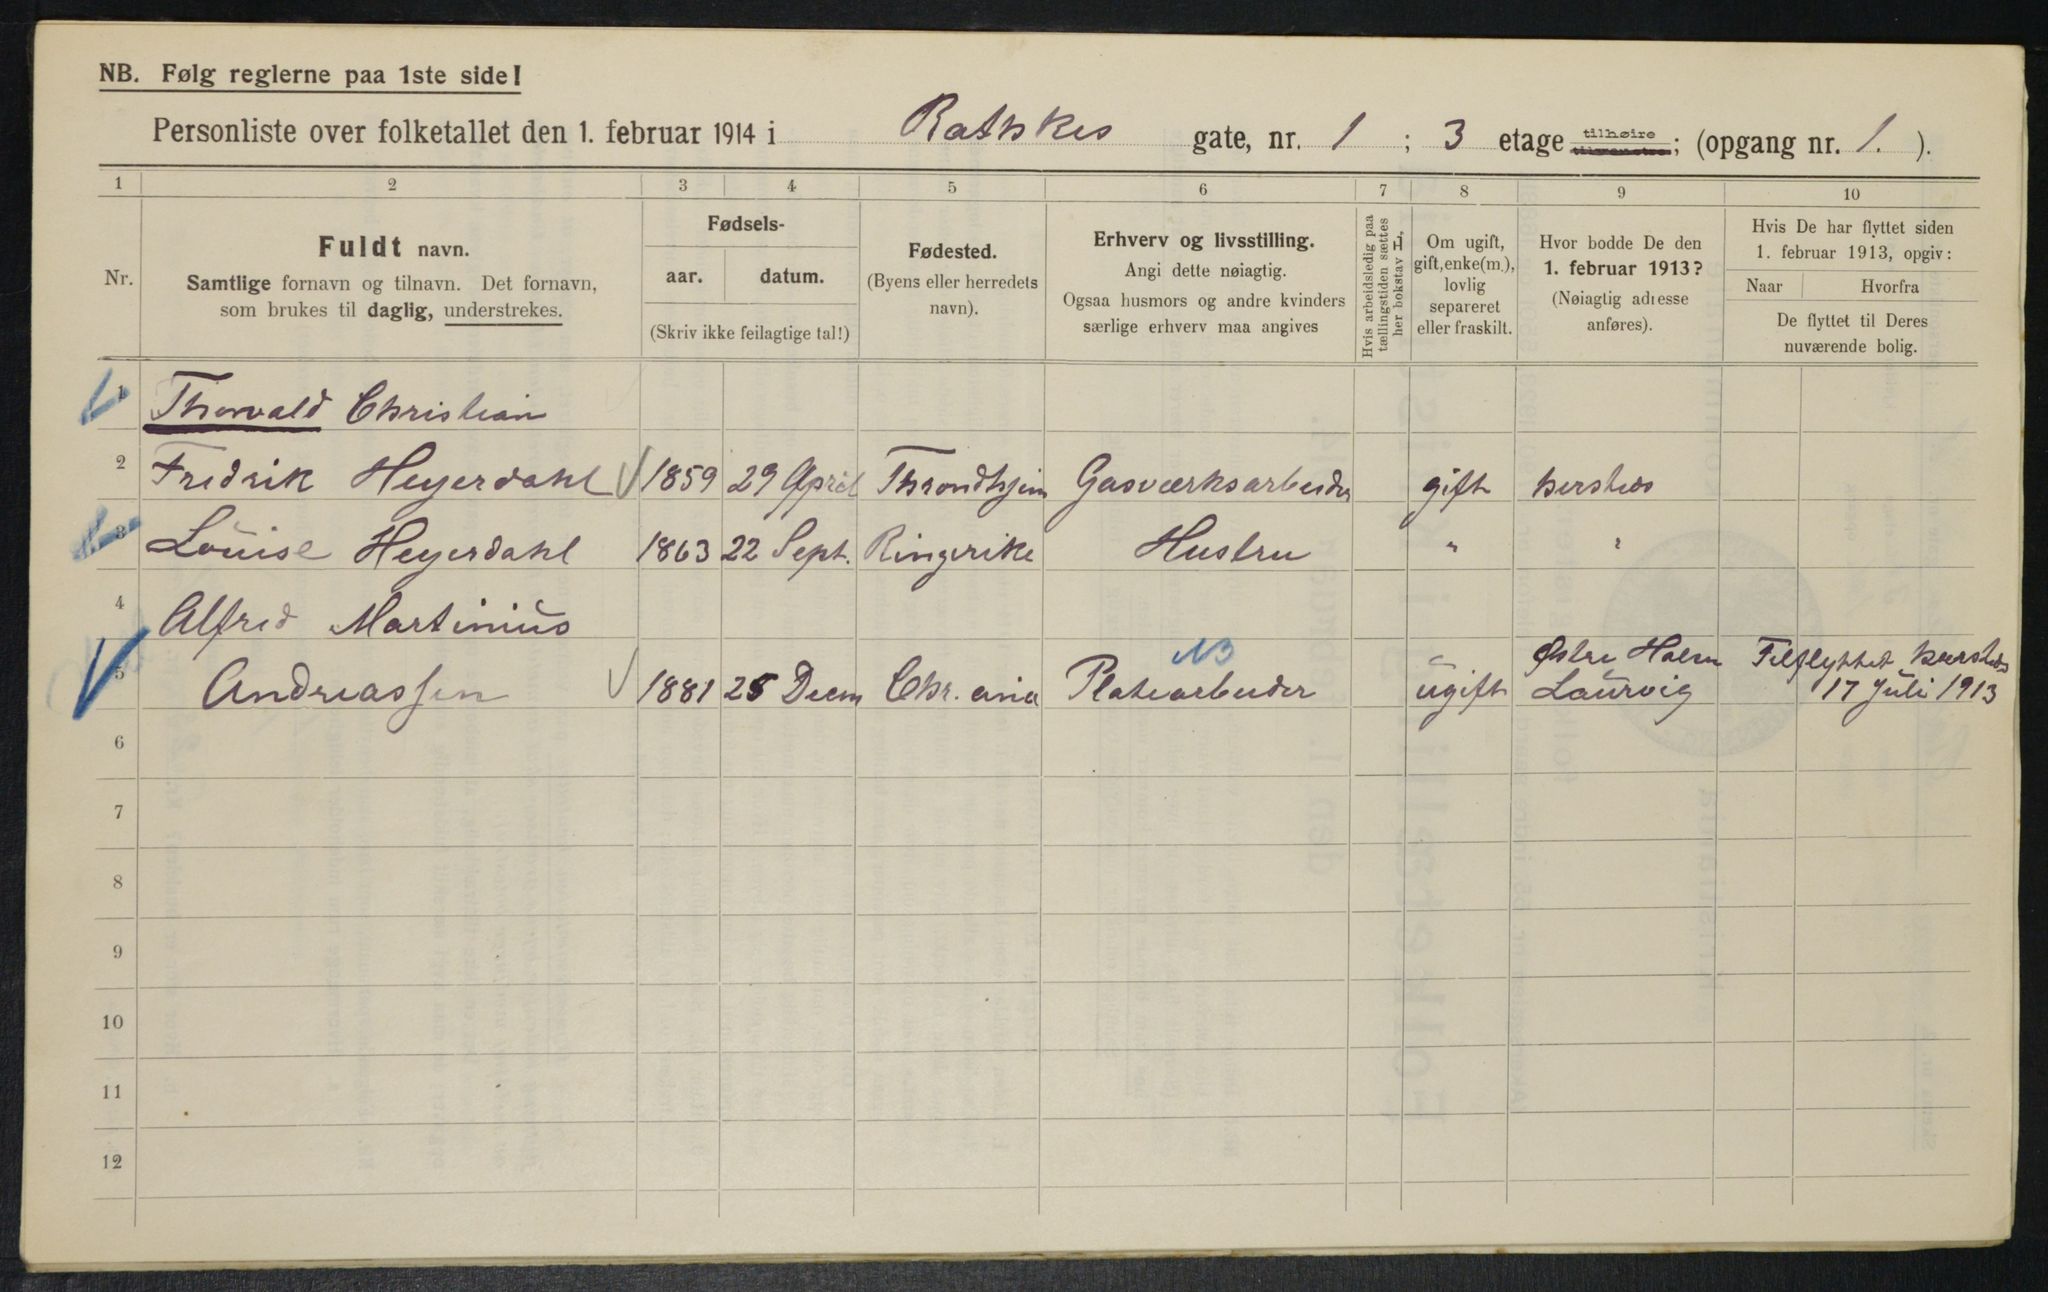 NB. Følg reglerne paa 1ste side!
Personliste over folketallet den 1. februar 1914 i Rathkes gate, nr. 1 ; 3 etage tilhøire tilvenstre; (opgang nr. 1. ).
1 2 3 4 5 6 7 8 9 10
Nr.
Fuldt navn.
Samtlige fornavn og tilnavn. Det fornavn,
som brukes til daglig, understrekes.
Fødsels-
aar. datum.
(Skriv ikke feilagtige tal!)
Fødested.
(Byens eller herredets
navn).
Erhverv og livsstilling.
Angi dette nøiagtig.
Ogsaa husmors og andre kvinders
særlige erhverv maa angives
Hvis arbeidsledig paa
tællingstiden sættes
her bokstav L,
Om ugift,
gift, enke(m.),
lovlig
separeret
eller fraskilt.
Hvor bodde De den
1. februar 1913?
(Nøiagtig adresse
anføres).
Hvis De har flyttet siden
1. februar 1913, opgiv:
Naar Hvorfra
De flyttet til Deres
nuværende bolig.
1 Thorvald Christian
2 Fredrik Heyerdahl 1859 29 April Throndhjem Gasværksarbeider gift hersteds
3 Louise Heyerdahl 1863 22 Sept. Ringerike Hustru " "
4 Alfred Martinius
NB
Østre Halsen Tilflyttet hersteds
5 Andreassen 1881 25 Decm Chr.ania Platearbeider ugift Laurvig 17 Juli 1913
6
7
8
9
10
11
12